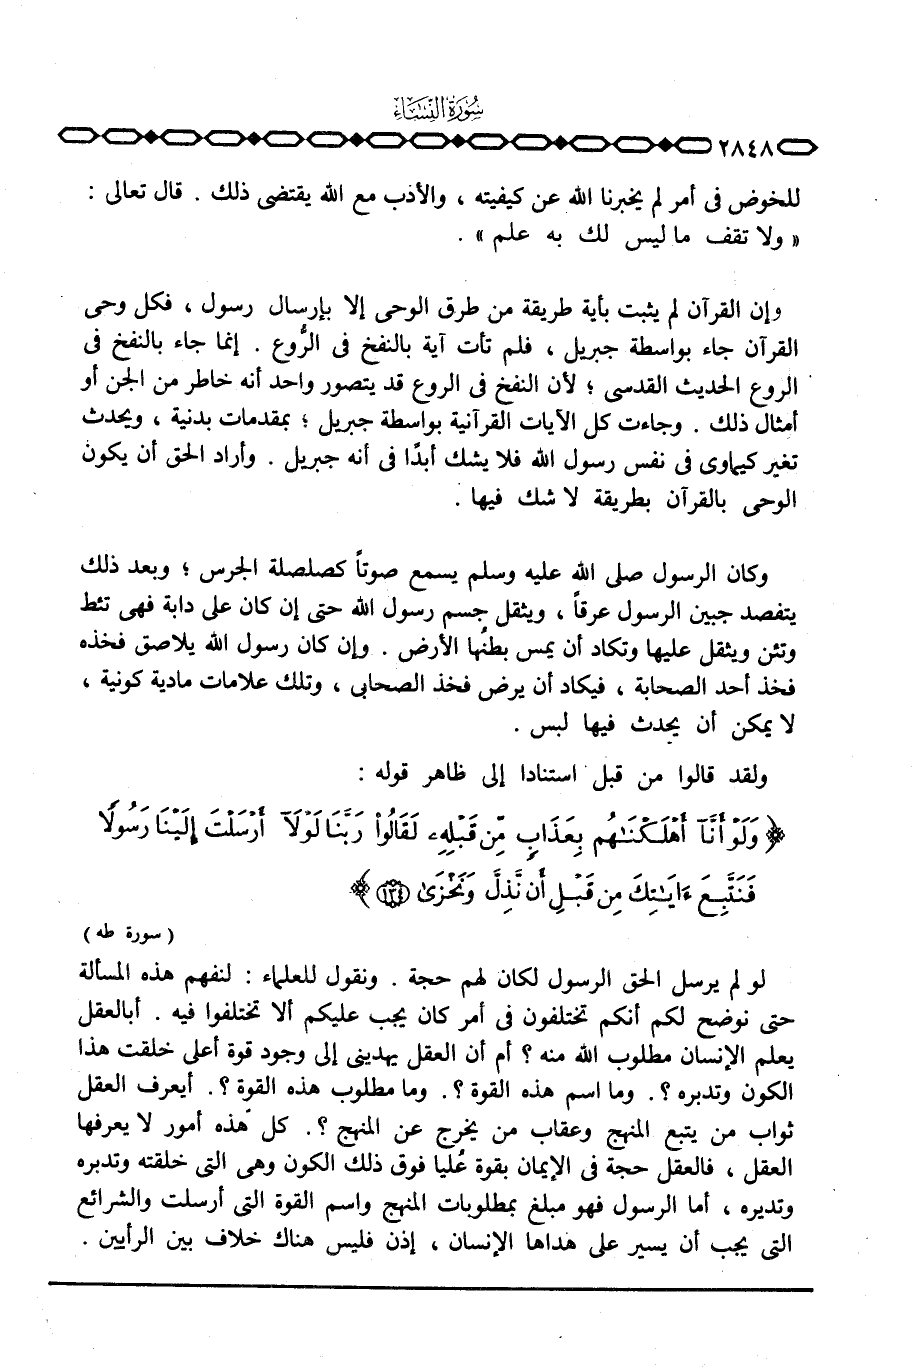 سُورَةُ النِّسَاءِ
٢٨٤٨
للخوض فى أمر لم يخبرنا الله عن كيفيته ، والأدب مع الله يقتضى ذلك . قال تعالى :
« ولا تقف ما ليس لك به علم » .
وإن القرآن لم يثبت بأية طريقة من طرق الوحى إلا بإرسال رسول ، فكل وحى
القرآن جاء بواسطة جبريل ، فلم تأت آية بالنفخ فى الرُّوع . إنما جاء بالنفخ فى
الروع الحديث القدسى ؛ لأن النفخ فى الروع قد يتصور واحد أنه خاطر من الجن أو
أمثال ذلك . وجاءت كل الآيات القرآنية بواسطة جبريل ؛ بمقدمات بدنية ، ويحدث
تغير كيماوى فى نفس رسول الله فلا يشك أبدًا فى أنه جبريل . وأراد الحق أن يكون
الوحى بالقرآن بطريقة لا شك فيها .
وكان الرسول صلى الله عليه وسلم يسمع صوتاً كصلصلة الجرس ؛ وبعد ذلك
يتفصد جبين الرسول عرقاً ، ويثقل جسم رسول الله حتى إن كان على دابة فهى تئط
وتئن ويثقل عليها وتكاد أن يمس بطنُها الأرض . وإن كان رسول الله يلاصق فخذه
فخذ أحد الصحابة ، فيكاد أن يرض فخذ الصحابى ، وتلك علامات مادية كونية ،
لا يمكن أن يحدث فيها لبس .
ولقد قالوا من قبل استنادا إلى ظاهر قوله :
﴿ وَلَوْ أَنَّآ أَهْلَكْنَٰهُم بِعَذَابٍ مِّن قَبْلِهِۦ لَقَالُوا۟ رَبَّنَا لَوْلَآ أَرْسَلْتَ إِلَيْنَا رَسُولًا
فَنَتَّبِعَ ءَايَٰتِكَ مِن قَبْلِ أَن نَّذِلَّ وَنَخْزَىٰ ﴿١٣٤﴾ ﴾
( سورة طه )
لو لم يرسل الحق الرسول لكان لهم حجة . ونقول للعلماء : لنفهم هذه المسألة
حتى نوضح لكم أنكم تختلفون فى أمر كان يجب عليكم ألا تختلفوا فيه . أبالعقل
يعلم الإنسان مطلوب الله منه ؟ أم أن العقل يهدينى إلى وجود قوة أعلى خلقت هذا
الكون وتدبره ؟. وما اسم هذه القوة ؟. وما مطلوب هذه القوة ؟. أيعرف العقل
ثواب من يتبع المنهج وعقاب من يخرج عن المنهج ؟. كل هذه أمور لا يعرفها
العقل ، فالعقل حجة فى الإيمان بقوة عُليا فوق ذلك الكون وهى التى خلقته وتدبره
وتديره ، أما الرسول فهو مبلغ بمطلوبات المنهج واسم القوة التى أرسلت والشرائع
التى يجب أن يسير على هداها الإنسان ، إذن فليس هناك خلاف بين الرأيين .